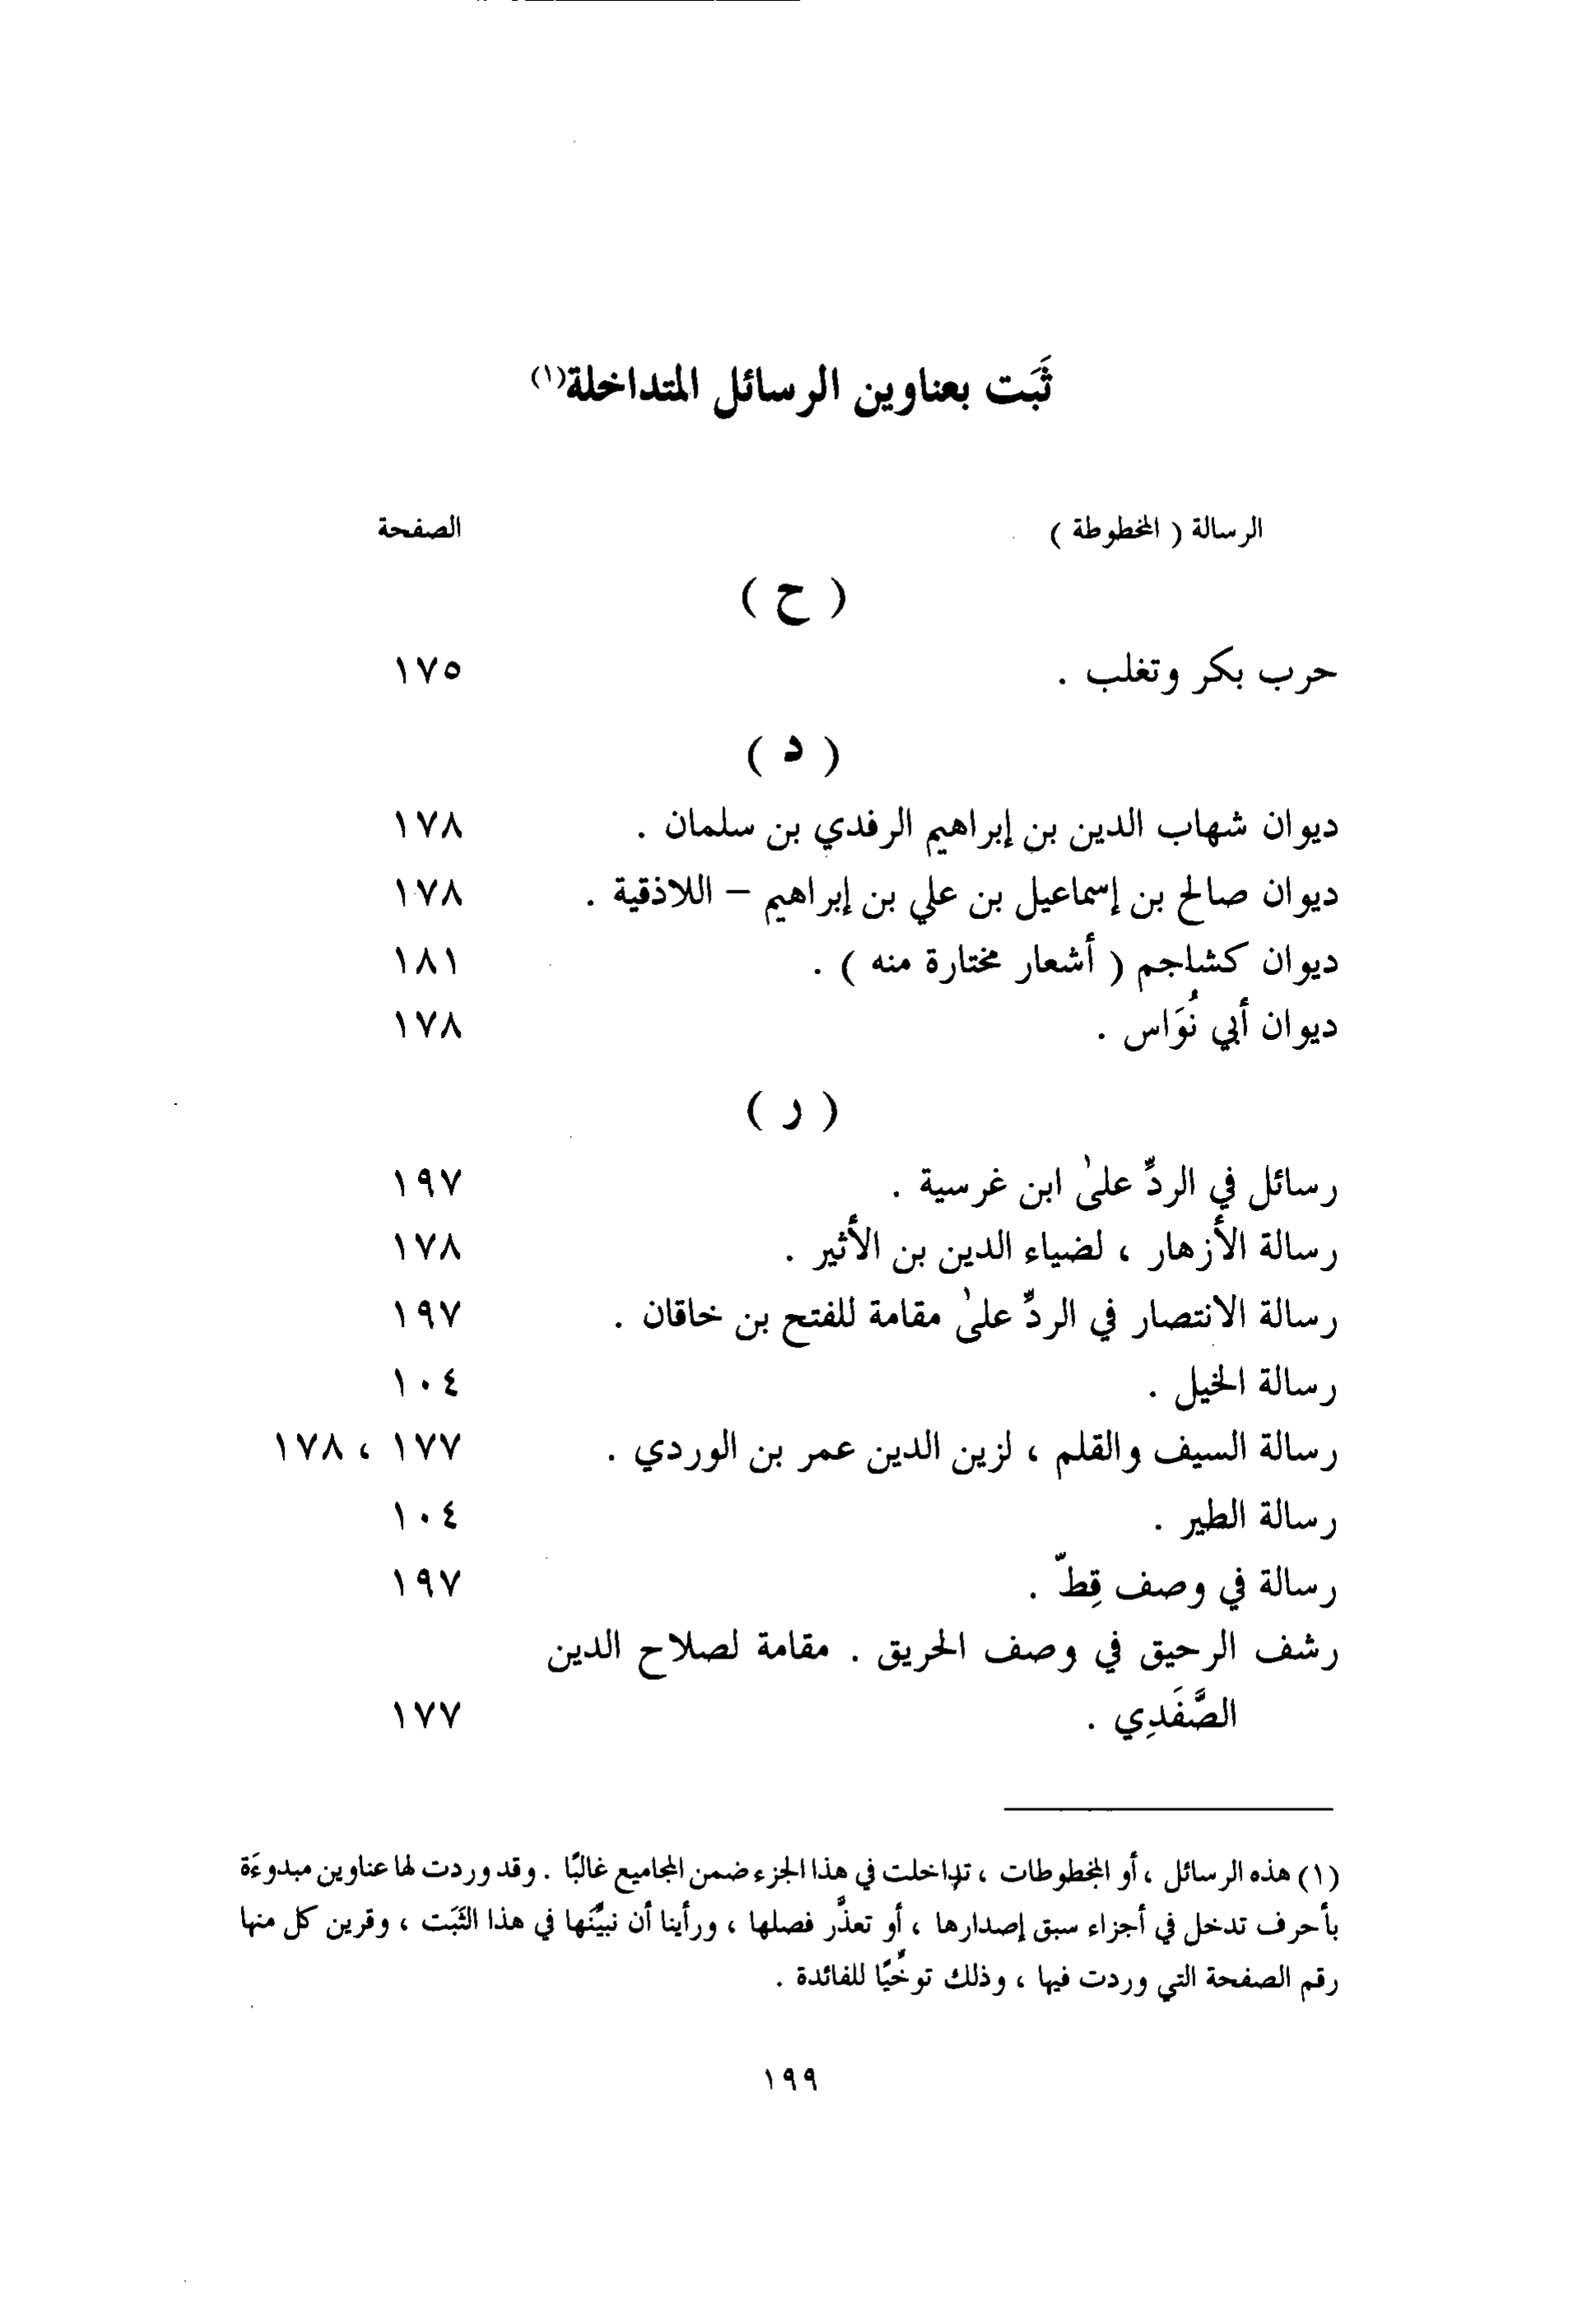 ثَبَت بعناوين الرسائل المتداخلة(١)
الرسالة ( المخطوطة ) الصفحة
( ح )
حرب بكر وتغلب . ١٧٥
( د )
ديوان شهاب الدين بن إبراهيم الرفدي بن سلمان . ١٧٨
ديوان صالح بن إسماعيل بن علي بن إبراهيم – اللاذقية . ١٧٨
ديوان كشاجم ( أشعار مختارة منه ) . ١٨١
ديوان أبي نُوَاس . ١٧٨
( ر )
رسائل في الردِّ علىٰ ابن غرسية . ١٩٧
رسالة الأزهار ، لضياء الدين بن الأثير . ١٧٨
رسالة الانتصار في الردِّ علىٰ مقامة للفتح بن خاقان . ١٩٧
رسالة الخيل . ١٠٤
رسالة السيف والقلم ، لزين الدين عمر بن الوردي . ١٧٧ ، ١٧٨
رسالة الطير . ١٠٤
رسالة في وصف قِطّ . ١٩٧
رشف الرحيق في وصف الحريق . مقامة لصلاح الدين
الصَّفَدِي . ١٧٧
(١) هذه الرسائل ، أو المخطوطات ، تداخلت في هذا الجزء ضمن المجاميع غالبًا . وقد وردت لها عناوين مبدوءَة
بأحرف تدخل في أجزاء سبق إصدارها ، أو تعذَّر فصلها ، ورأينا أن نبيِّنها في هذا الثَبَت ، وقرين كل منها
رقم الصفحة التي وردت فيها ، وذلك توخِّيًا للفائدة .
١٩٩